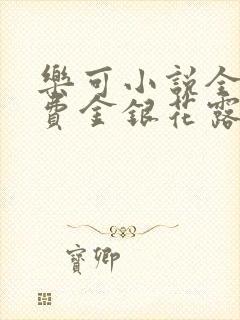 樂可小說全
費金銀花露
寶卿